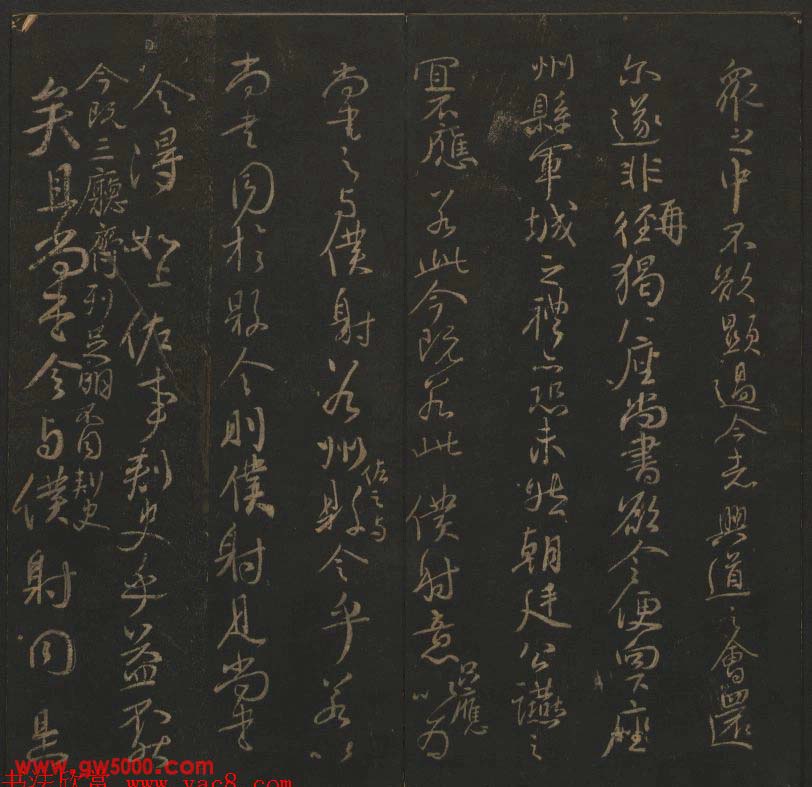 眾之中不欲顯過今者興道之會還
尔遂非再徑猲八座尚書欲令便向下座
州縣軍城之禮亦恐未然朝廷公讌之
宜不應若此今既若此僕射意只應以為
尚書之與僕射若州佐之與縣令乎若以
尚書同於縣令則僕射見尚書
令得如上佐事刺史乎益不然
今既三廳齊列足明不同刺史
矣且尚書令與僕射同是
www.gw5000.com
书法欣赏 www.yac8.com